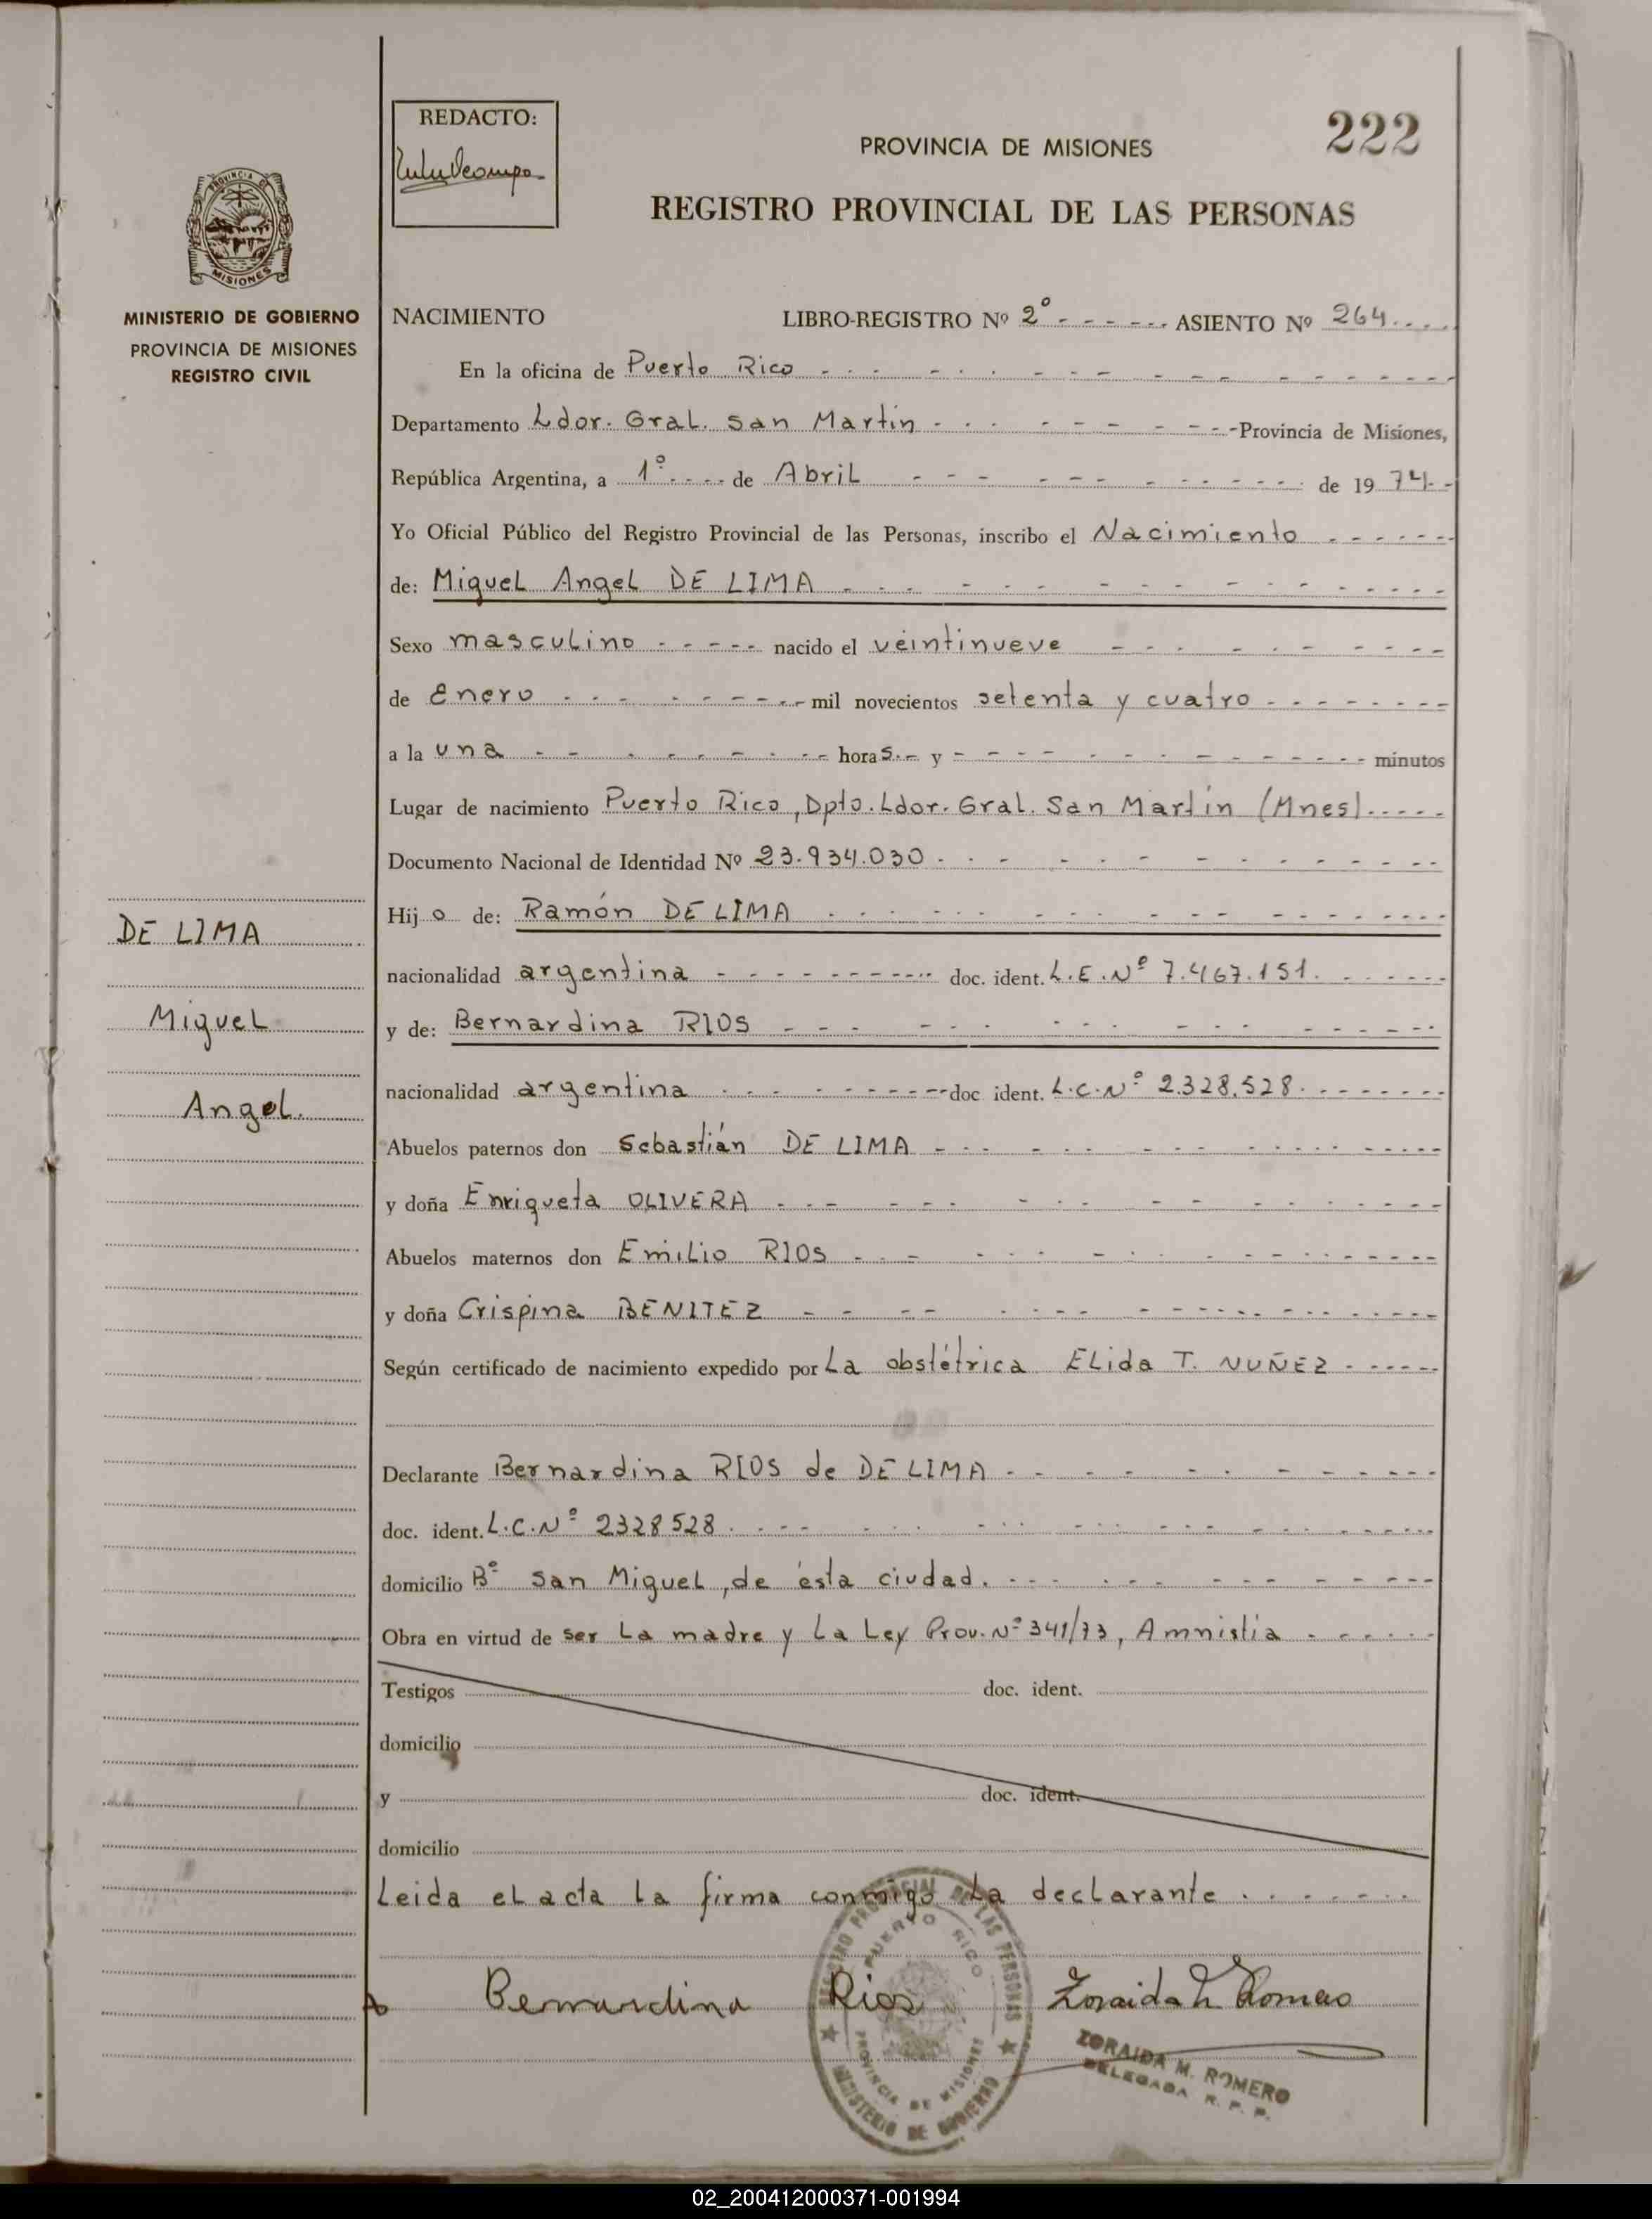 REDACTO:
222
PROVINCIA DE MISIONES
REGISTRO PROVINCIAL DE LAS PERSONAS
PROVINCIA DE
MISIONES
MINISTERIO DE GOBIERNO
PROVINCIA DE MISIONES
REGISTRO CIVIL
NACIMIENTO LIBRO-REGISTRO Nº 2º ASIENTO Nº 264
En la oficina de Puerto Rico
Departamento Ldor. Gral. San Martin Provincia de Misiones,
República Argentina, a 1º de Abril de 19 74
Yo Oficial Público del Registro Provincial de las Personas, inscribo el Nacimiento
de: Miguel Angel DE LIMA
Sexo masculino nacido el veintinueve
de Enero mil novecientos setenta y cuatro
a la una horas.- y minutos
Lugar de nacimiento Puerto Rico, Dpto. Ldor. Gral. San Martín (Mnes)
Documento Nacional de Identidad Nº 23.934.030
Hijo de: Ramón DE LIMA
nacionalidad argentina doc. ident. L.E.Nº 7.467.151.
y de: Bernardina RIOS
nacionalidad argentina doc. ident. L.C.Nº 2.328.528.
Abuelos paternos don Sebastián DE LIMA
y doña Enriqueta OLIVERA
Abuelos maternos don Emilio RIOS
y doña Crispina BENITEZ
Según certificado de nacimiento expedido por La obstétrica Elida T. NUÑEZ
Declarante Bernardina RIOS de DE LIMA
doc. ident. L.C.Nº 2328528
domicilio Bº San Miguel, de ésta ciudad.
Obra en virtud de ser La madre y La Ley Prov. Nº 341/73, Amnistia
Testigos doc. ident.
domicilio
y doc. ident.
domicilio
Leida el acta la firma conmigo La declarante
Bernardina Rios Zoraida M Romero
ZORAIDA M. ROMERO
DELEGADA R. P. P.
REGISTRO PROVINCIAL DE LAS PERSONAS
PUERTO RICO
PROVINCIA DE MISIONES
MINISTERIO DE GOBIERNO
DE LIMA
Miguel
Angel.
02_200412000371-001994